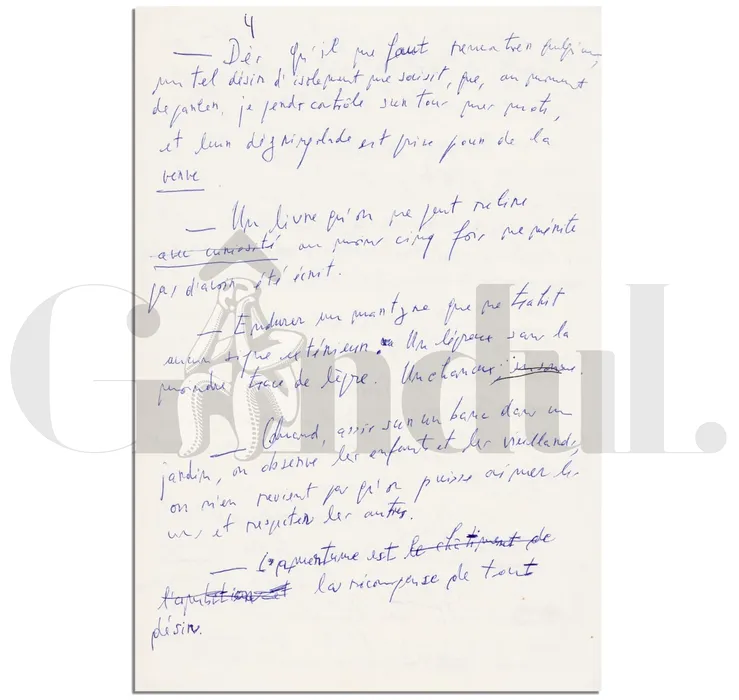 4
— Dès qu'il me faut rencontrer quelqu'un,
un tel désir d'isolement me saisit, que, au moment
de parler, je perds contrôle sur tous mes mots,
et leur dégringolade est prise pour de la
verve.
— Un livre qu'on ne peut relire
avec curiosité au moins cinq fois ne mérite
pas d'avoir été écrit.
— Endurer un martyre que ne trahit
aucun signe extérieur. Un lépreux sans la
moindre trace de lèpre. Un chanceux
— Quand, assis sur un banc dans un
jardin, on observe les enfants et les vieillards,
on n'en revient pas qu'on puisse aimer les
uns et respecter les autres.
— L'amertume est le châtiment de
l'ambition et la récompense de tout
désir.
Gindul.